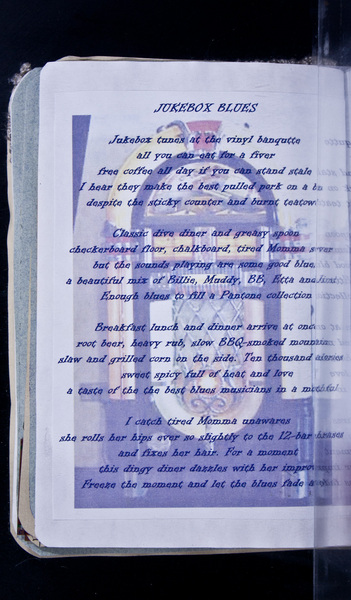 JUKEBOX BLUES
Jukebox tunes at the vinyl banqutte
all you can eat for a fiver
free coffee all day if you can stand stale
I hear they make the best pulled pork on a
despite the sticky counter and burnt
Classic dive diner and greasy spoon
checkerboard floor, chalkboard, tired Momma
but the sounds playing are some good
a beautiful mix of Billie, Muddy, BB, Etta and
Enough blues to fill a Pantone collection
Breakfast lunch and dinner arrive at once
root beer, heavy rub, slow BBQ-smoked
slaw and grilled corn on the side. Ten thousand
sweet spicy full of heat and love
a taste of the the best blues musicians in a
I catch tired Momma unawares
she rolls her hips ever so slightly to the 12-bar
and fixes her hair. For a moment
this dingy diner dazzles with her
Freeze the moment and let the blues fade